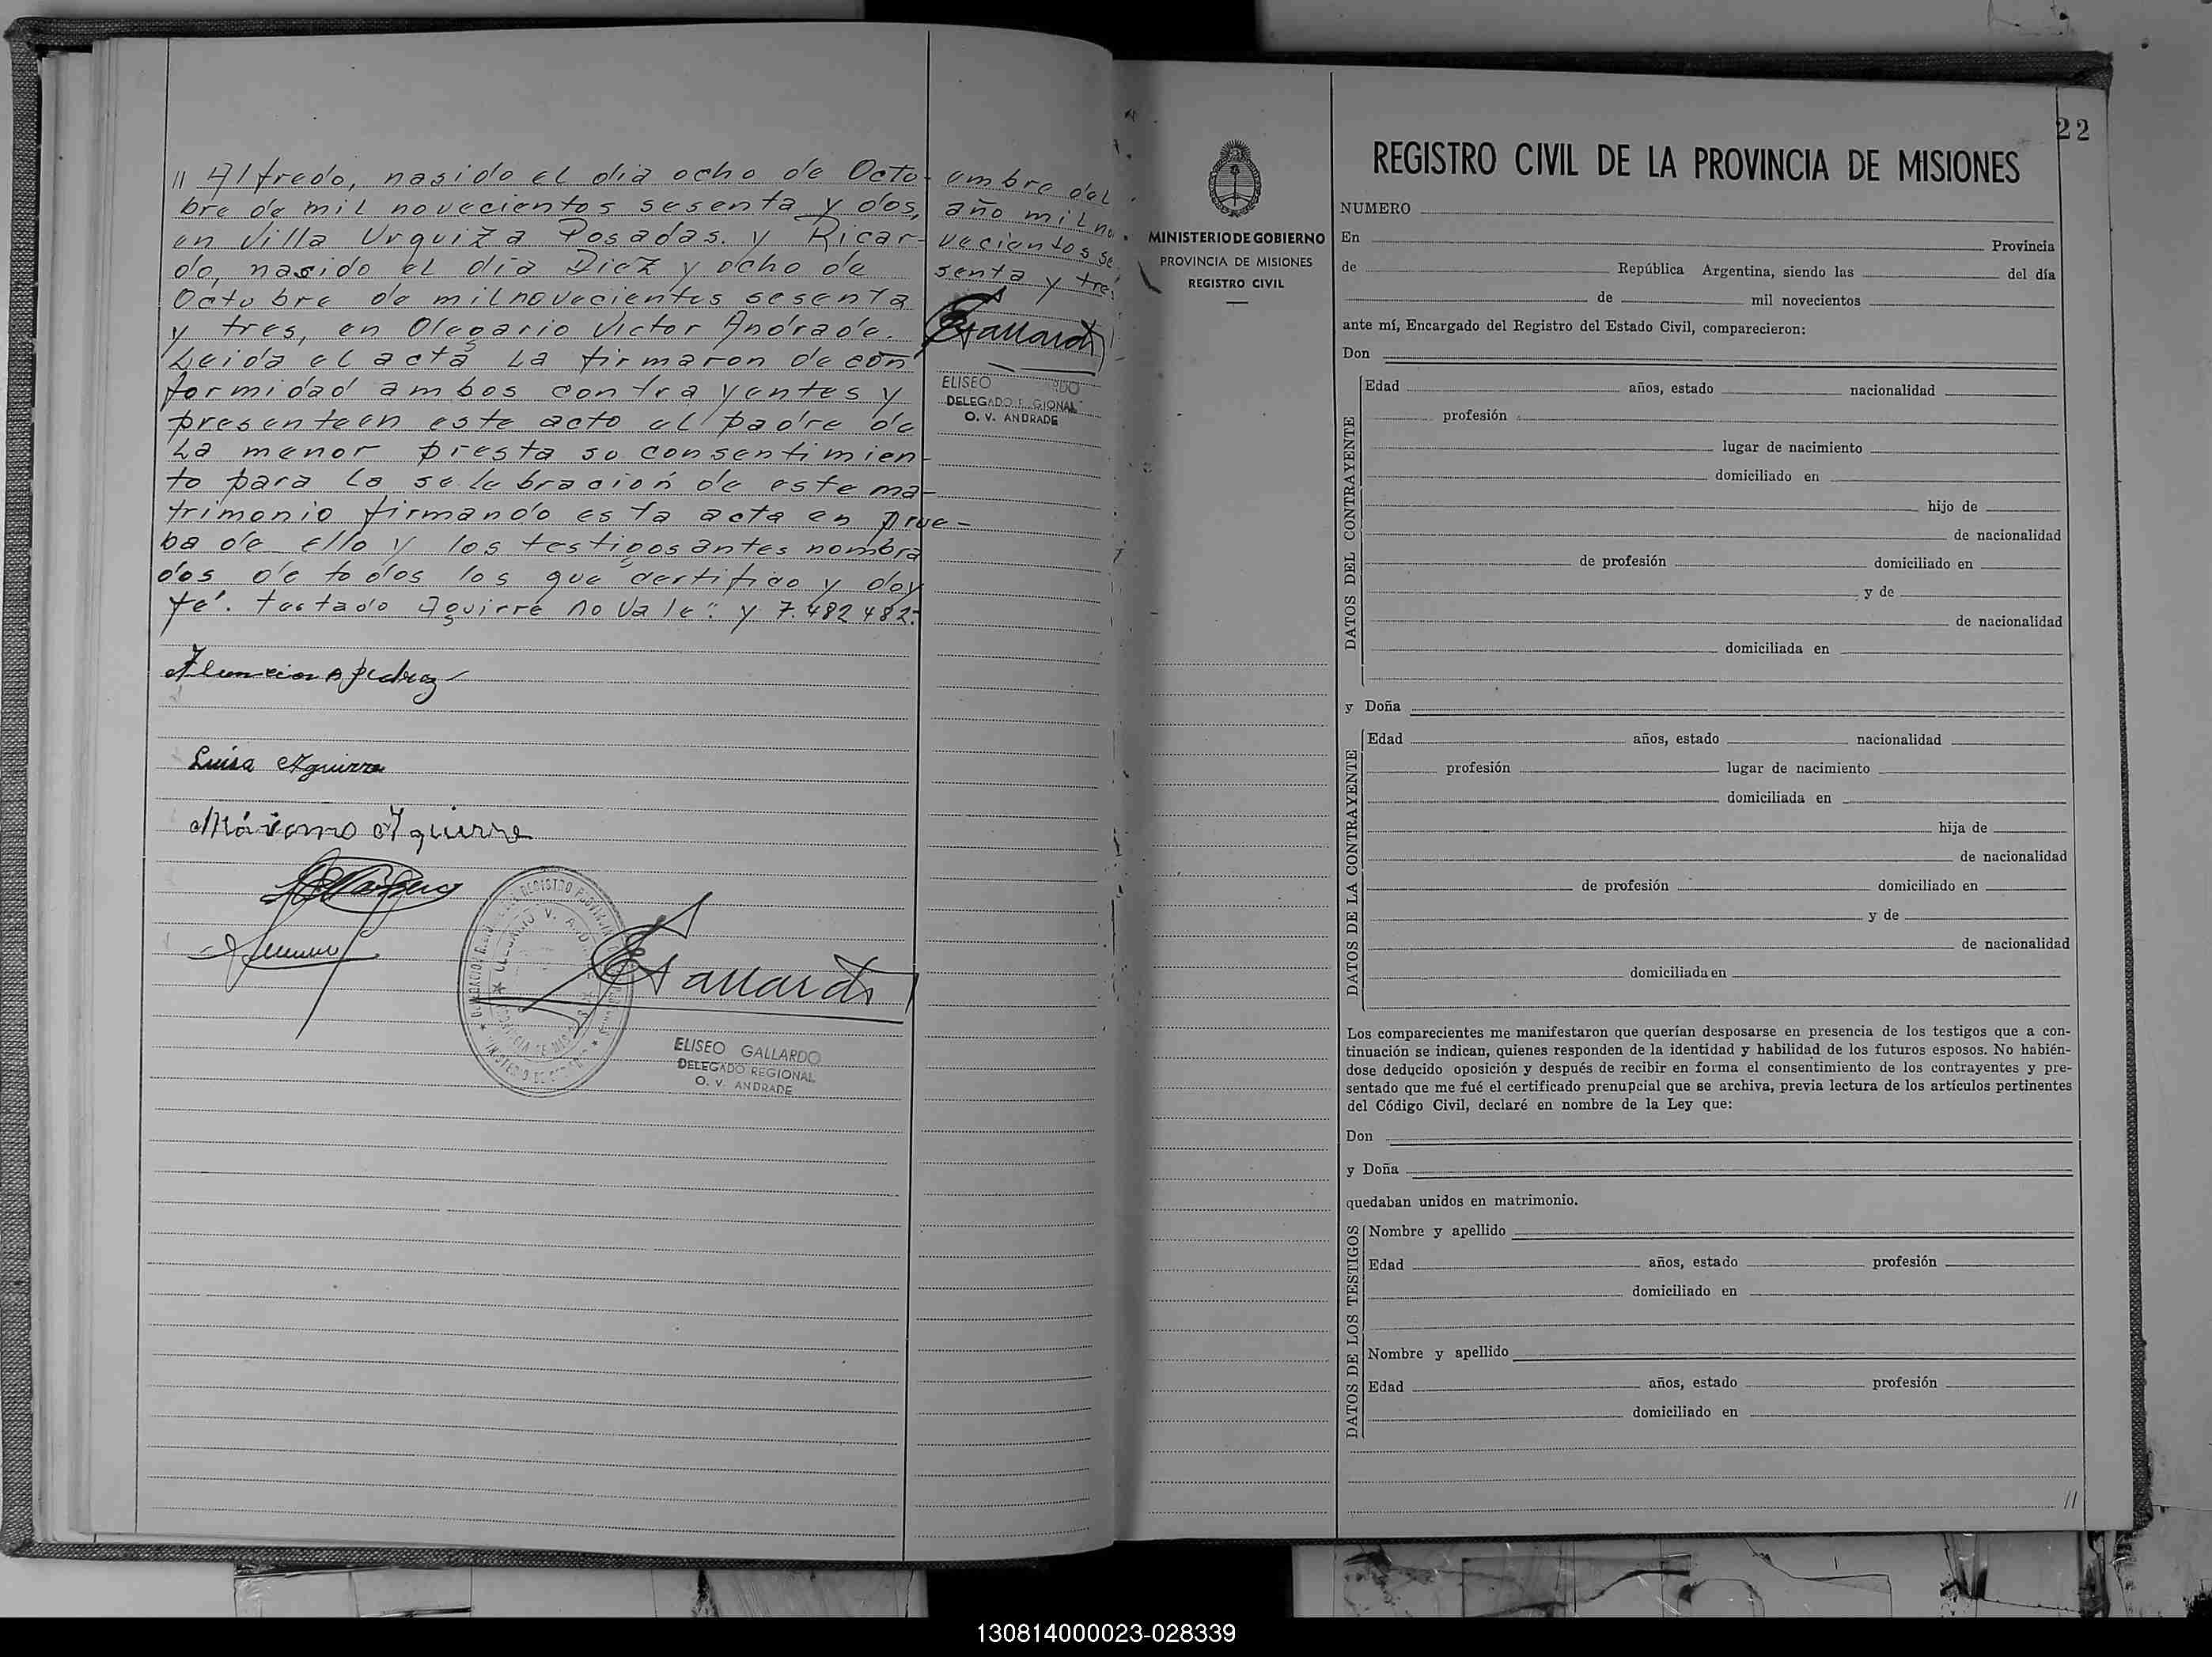 // Alfredo, nasido el dia ocho de Octu-
bre de mil novecientos sesenta y dos,
en Villa Urquiza Posadas. y Ricar-
do, nasido el día Diez y ocho de
Octubre de mil novecientos sesenta
y tres, en Olegario Victor Andrade.
Leida el acta La firmaron de con
formidad ambos contrayentes y
presenteen este acto el padre de
La menor presta so consentimien-
to para la selebración de este ma-
trimonio firmando esta acta en prue-
ba de ello y los testigos antes nombra
dos de todos los que certifico y doy
fé. testado Aguirre no Vale": y 7.482 482:
Luisa Aguirre
Máximo Aguirre
Gallardo
ELISEO GALLARDO
DELEGADO REGIONAL
O. V. ANDRADE
embre del
año mil no
vecientos se
senta y tres
Gallardo
ELISEO
DELEGADO
O. V. ANDRADE
22
MINISTERIO DE GOBIERNO
PROVINCIA DE MISIONES
REGISTRO CIVIL
REGISTRO CIVIL DE LA PROVINCIA DE MISIONES
NUMERO
En Provincia
de República Argentina, siendo las del día
de mil novecientos
ante mí, Encargado del Registro del Estado Civil, comparecieron:
Don
DATOS DEL CONTRAYENTE
Edad años, estado nacionalidad
profesión
lugar de nacimiento
domiciliado en
hijo de
de nacionalidad
de profesión domiciliado en
y de
de nacionalidad
domiciliada en
y Doña
DATOS DE LA CONTRAYENTE
Edad años, estado nacionalidad
profesión lugar de nacimiento
domiciliada en
hija de
de nacionalidad
de profesión domiciliado en
y de
de nacionalidad
domiciliada en
Los comparecientes me manifestaron que querían desposarse en presencia de los testigos que a con-
tinuación se indican, quienes responden de la identidad y habilidad de los futuros esposos. No habién-
dose deducido oposición y después de recibir en forma el consentimiento de los contrayentes y pre-
sentado que me fué el certificado prenupcial que se archiva, previa lectura de los artículos pertinentes
del Código Civil, declaré en nombre de la Ley que:
Don
y Doña
quedaban unidos en matrimonio.
DATOS DE LOS TESTIGOS
Nombre y apellido
Edad años, estado profesión
domiciliado en
Nombre y apellido
Edad años, estado profesión
domiciliado en
//
130814000023-028339